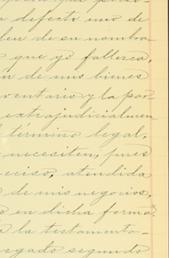 o defecto uno de
len de su nombra-
que yo fallezca,
n de mis bienes
ventario y la par
extrajudicialmen
término legal,
necesiten, pues
eciso, atendida
de mis negocios,
s en dicha forma
a la testamento-
egado segundo